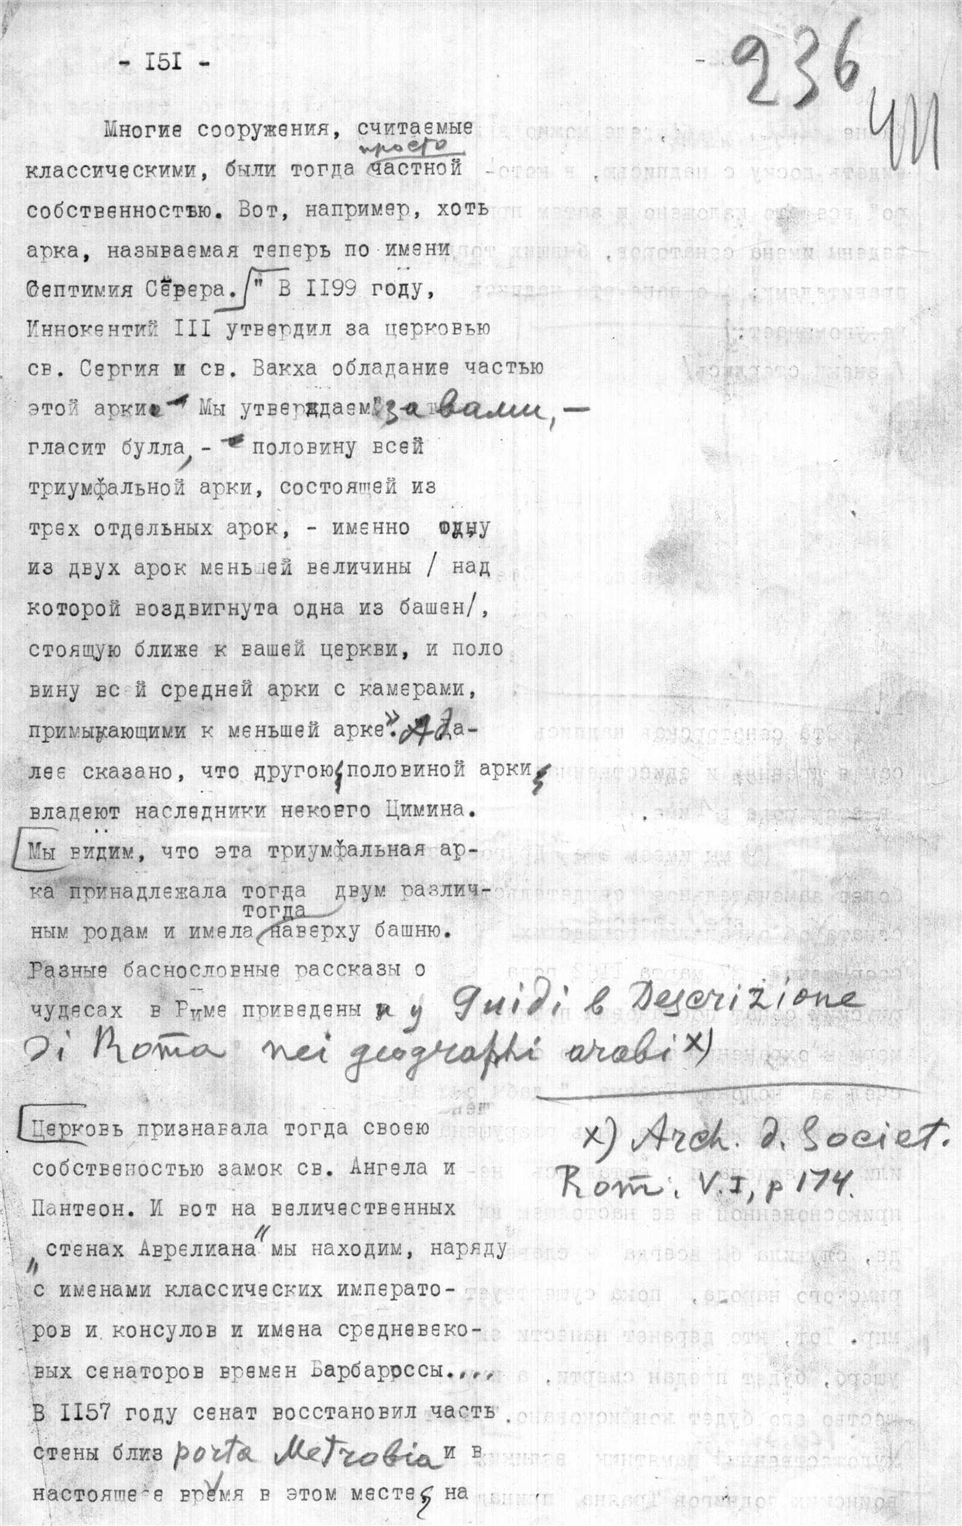 - I5I -
236
Многие сооружения, считаемые
просто
классическими, были тогда частной
собственностью. Вот, например, хоть
арка, называемая теперь по имени
Септимия Севера. " В II99 году,
Иннокентий III утвердил за церковью
св. Сергия и св. Вакха обладание частью
этой арки. Мы утверждаем за вами, —
гласит булла, - половину всей
триумфальной арки, состоящей из
трех отдельных арок, - именно одну
из двух арок меньшей величины / над
которой воздвигнута одна из башен/,
стоящую ближе к вашей церкви, и поло
вину всей средней арки с камерами,
примыкающими к меньшей арке". А да-
лее сказано, что другою половиной арки
владеют наследники некоего Цимина.
Мы видим, что эта триумфальная ар-
ка принадлежала тогда двум различ-
тогда
ным родам и имела наверху башню.
Разные баснословные рассказы о
чудесах в Риме приведены и у Guidi в Descrizione
di Roma nei geographi arabi x)
Церковь признавала тогда своею
собственостью замок св. Ангела и
Пантеон. И вот на величественных
стенах Аврелиана" мы находим, наряду
"с именами классических императо-
ров и консулов и имена средневеко-
вых сенаторов времен Барбароссы....
В II57 году сенат восстановил часть
стены близ porta Metrobia и в
настоящее время в этом месте, на
x) Arch. d. Societ.
Rom. V.I, p 174.